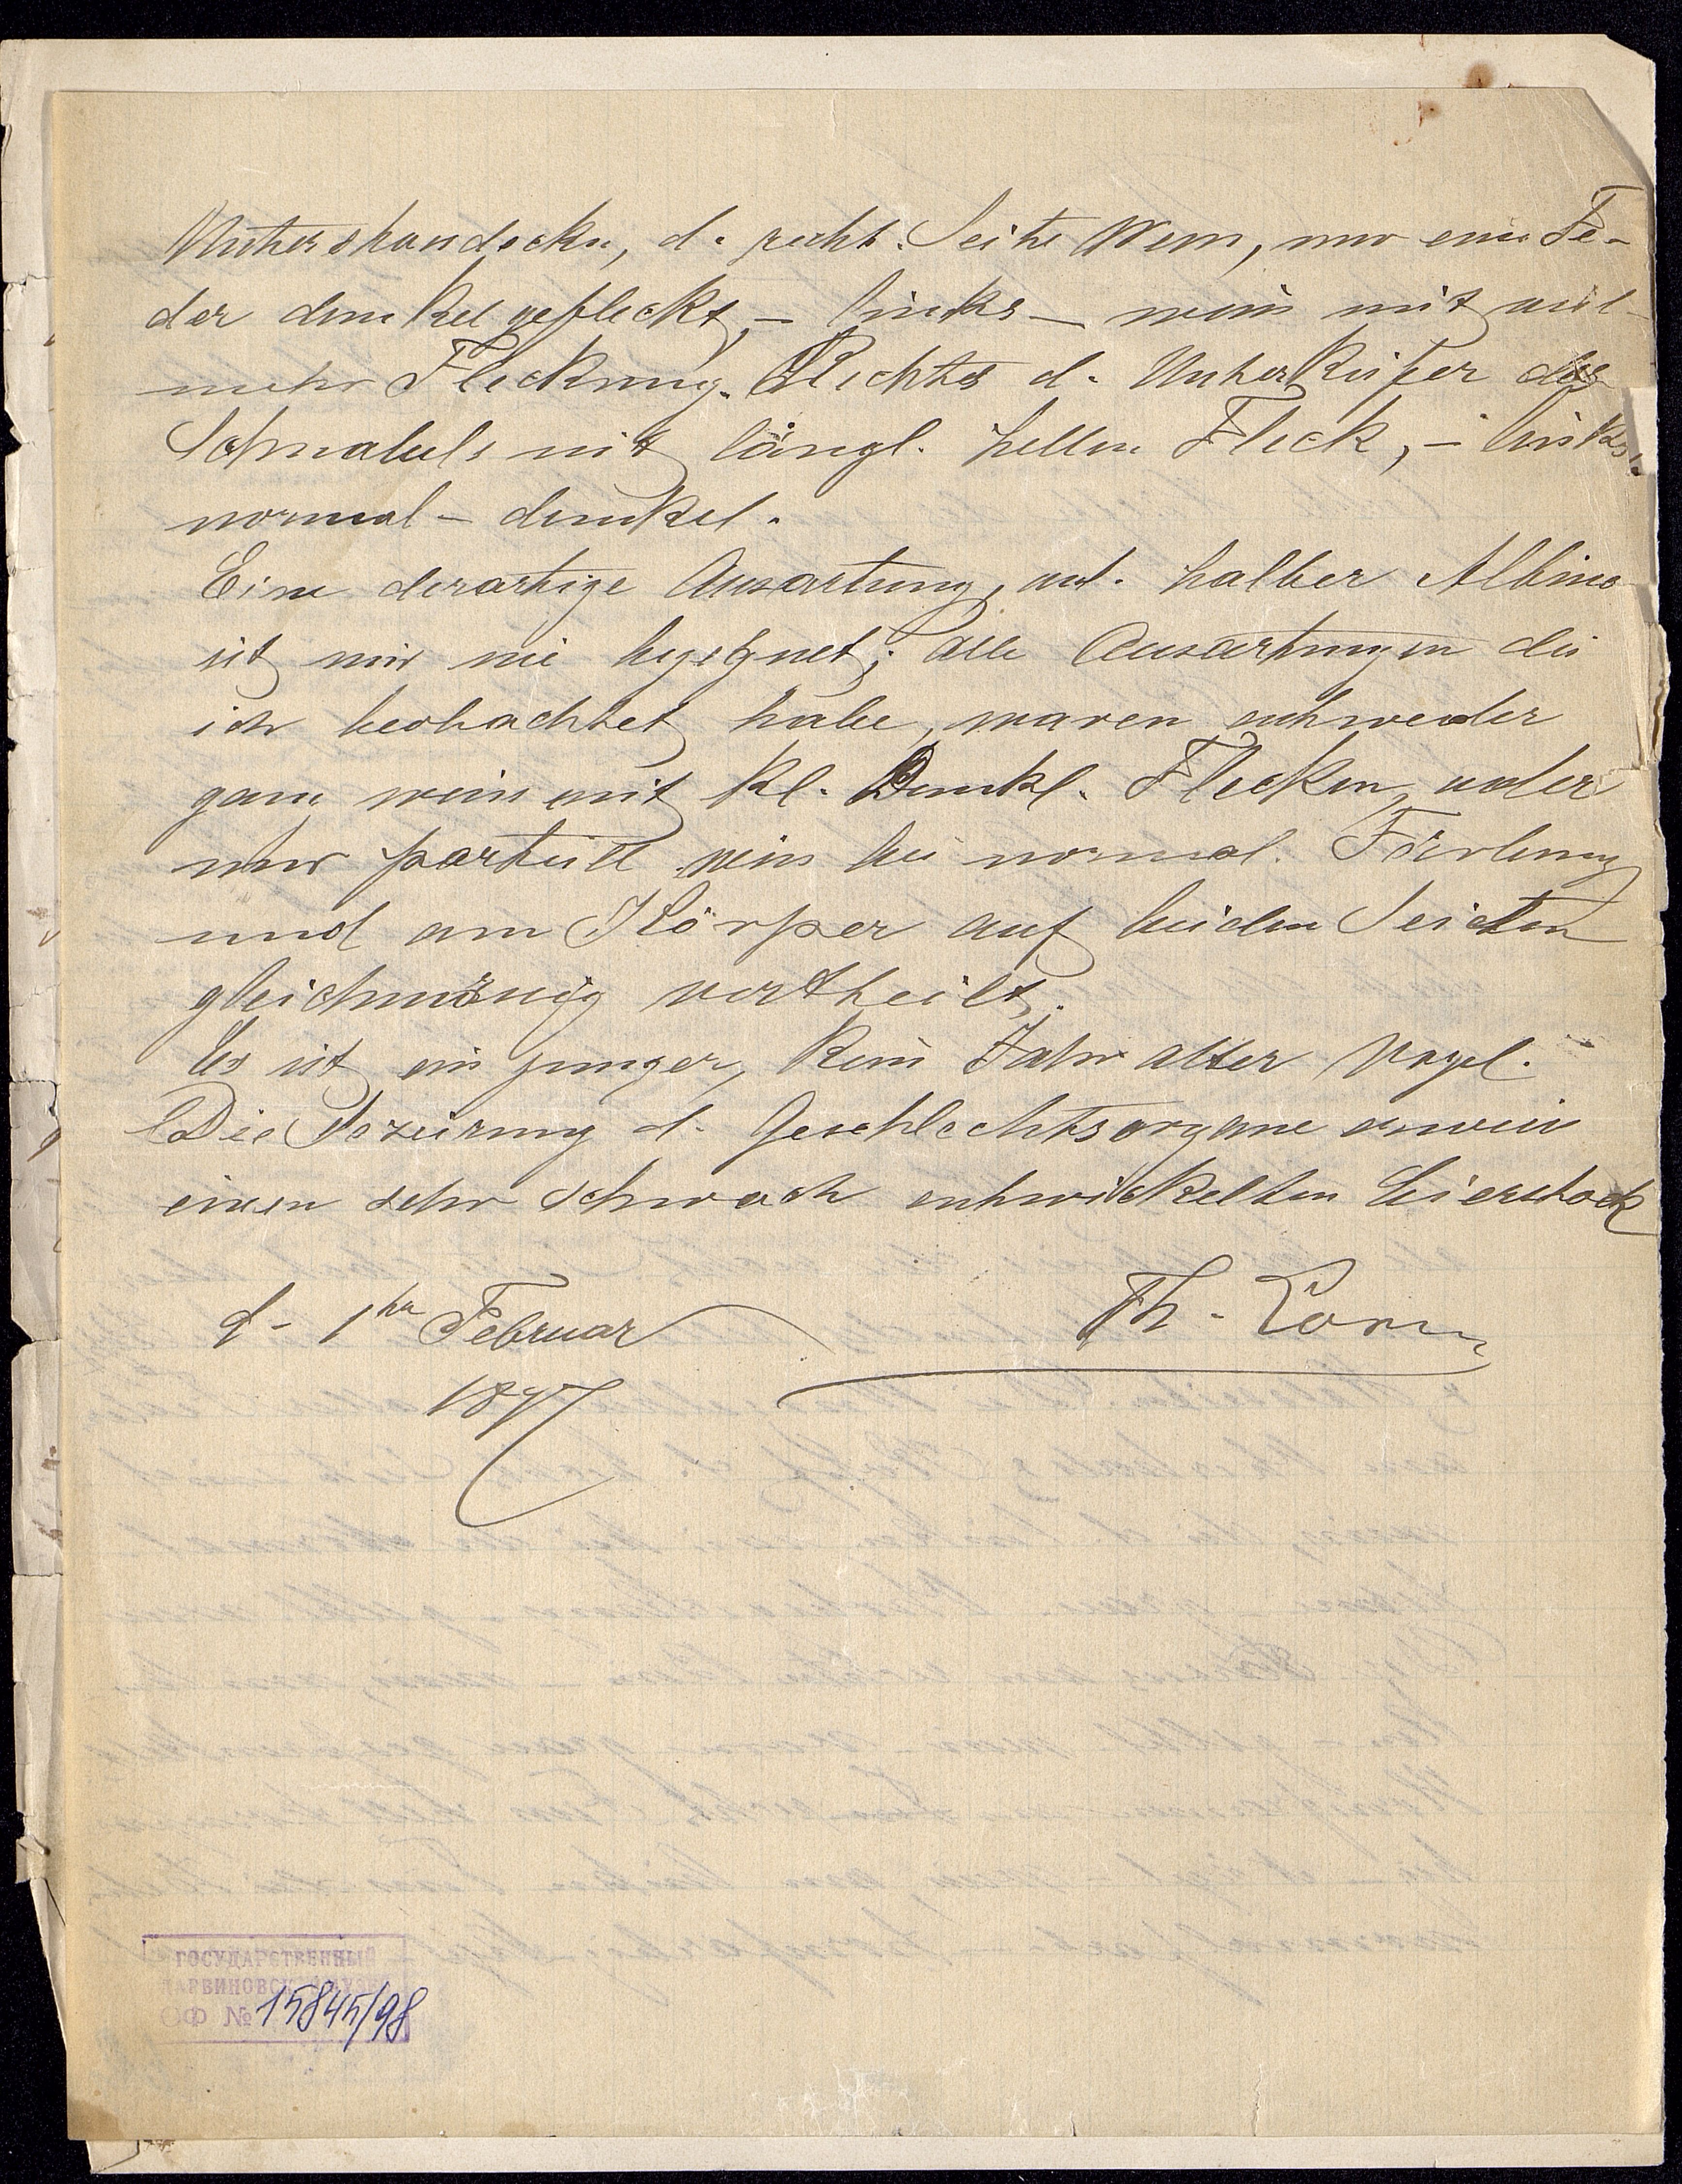 Unterschwandecken, d. recht. Seite weiss, nur eine Fe-
der dunkel gefleckt, – links – weiss mit viel
mehr Fleckung. Rechts d. Unterkiefer des
Schnabels mit längl. hellem Fleck, – links
normal – dunkel.
Eine derartige Ausartung, od. halber Albino
ist mir nie begegnet; alle Ausartungen die
ich beobachtet habe, waren entweder
ganz weiss mit kl. Dunkl. Flecken, oder
nur partiell weiss bei normal. Färbung
und am Körper auf beiden Seiten
gleichmässig vertheilt.
Es ist ein junger, kein Jahr alter Vogel.
Die Sezirung d. Geschlechtsorgane erwies
einen sehr schwach entwickelten Eierstock
d. 1ten Februar
Th. Lorenz
1897
ГОСУДАРСТВЕННЫЙ
ДАРВИНОВСКИЙ МУЗЕЙ
ОФ № 15845/98